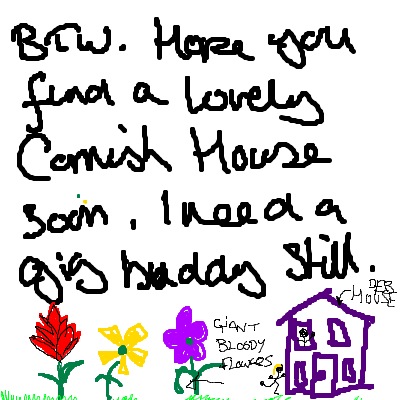 BTW. Hope you
find a lovely
Cornish House
soon. I need a
gig buddy still.
DER
HOUSE
GIANT
BLOODY
FLOWERS